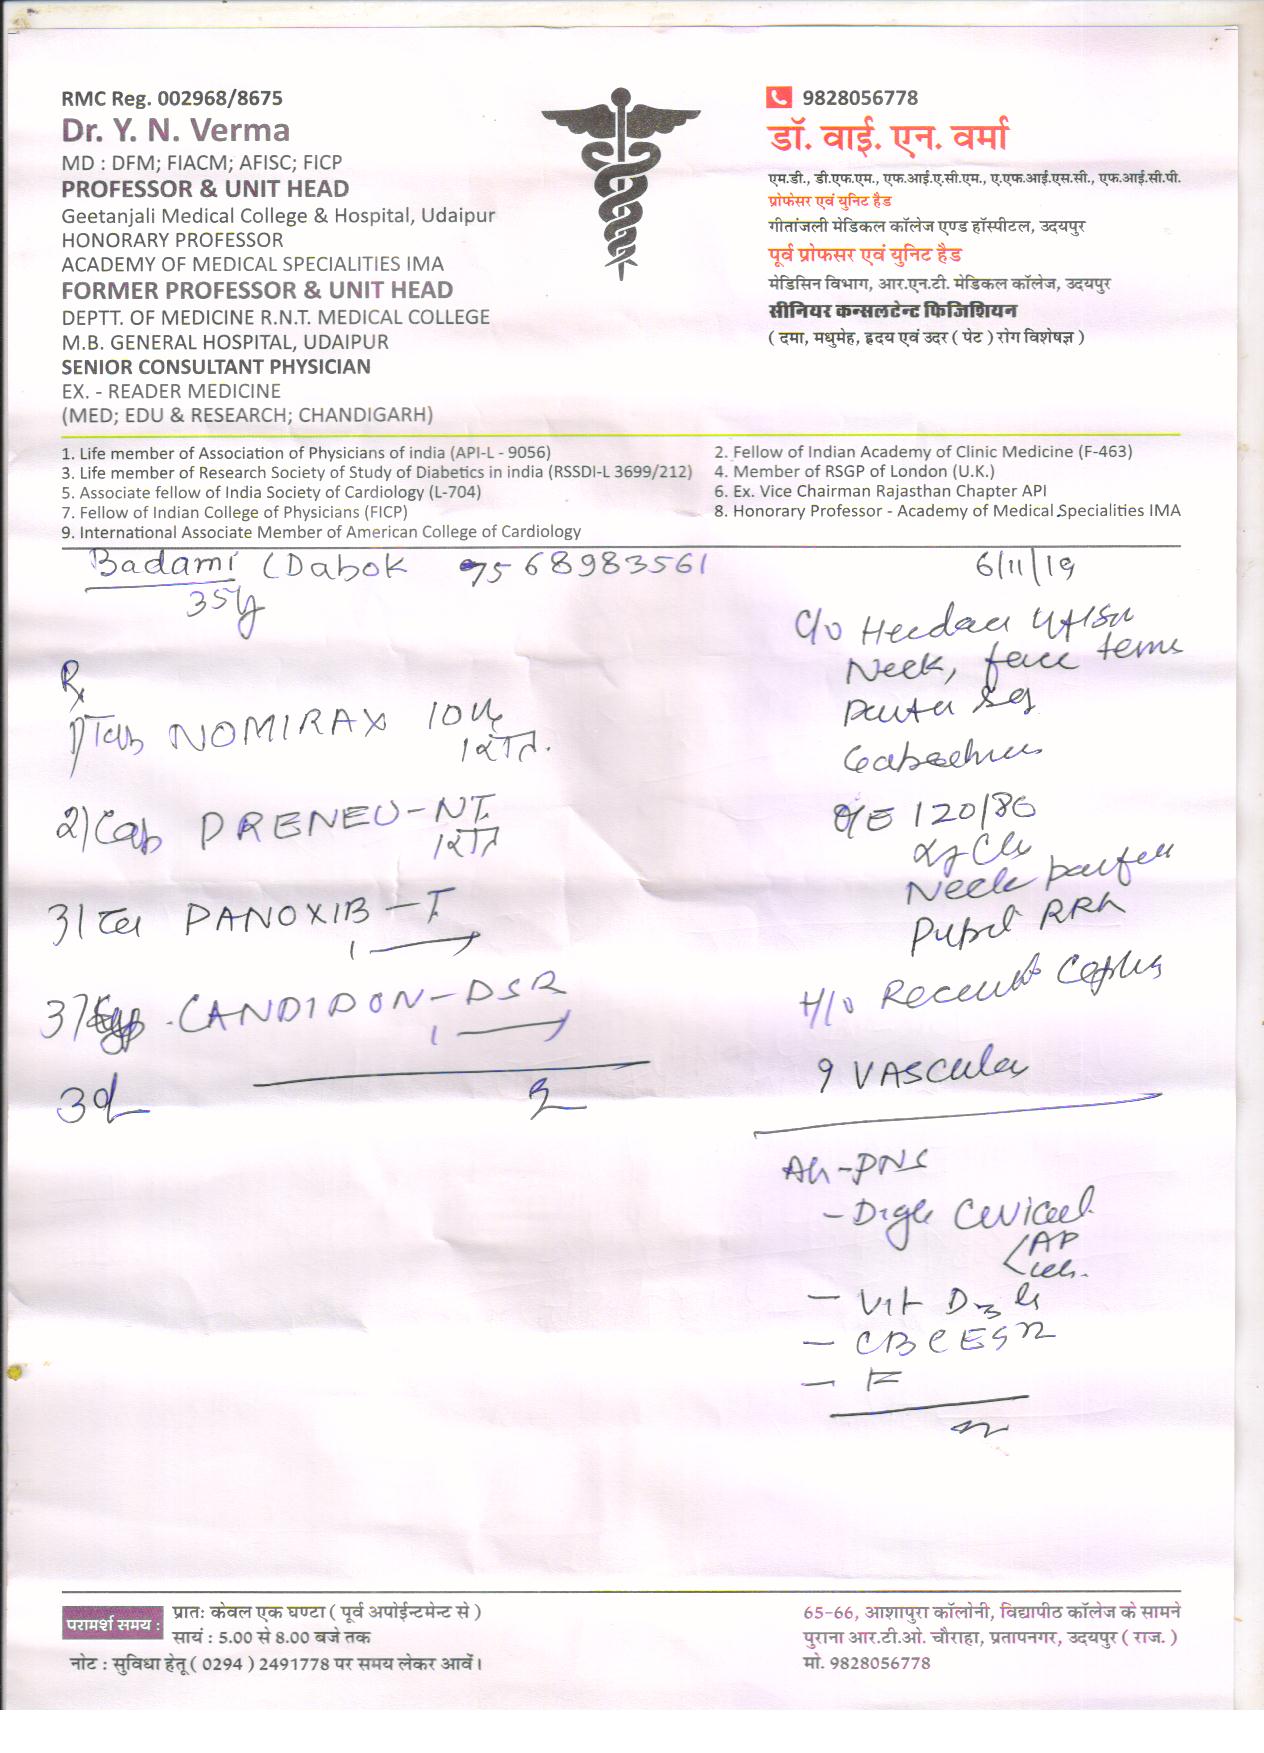 RMC Reg. 002968/8675
Dr. Y. N. Verma
MD : DFM; FIACM; AFISC; FICP
PROFESSOR & UNIT HEAD
Geetanjali Medical College & Hospital, Udaipur
HONORARY PROFESSOR
ACADEMY OF MEDICAL SPECIALITIES IMA
FORMER PROFESSOR & UNIT HEAD
DEPTT. OF MEDICINE R.N.T. MEDICAL COLLEGE
M.B. GENERAL HOSPITAL, UDAIPUR
SENIOR CONSULTANT PHYSICIAN
EX. - READER MEDICINE
(MED; EDU & RESEARCH; CHANDIGARH)
9828056778
डॉ. वाई. एन. वर्मा
एम.डी., डी.एफ.एम., एफ.आई.ए.सी.एम., ए.एफ.आई.एस.सी., एफ.आई.सी.पी.
प्रोफेसर एवं युनिट हैड
गीतांजली मेडिकल कॉलेज एण्ड हॉस्पीटल, उदयपुर
पूर्व प्रोफसर एवं युनिट हैड
मेडिसिन विभाग, आर.एन.टी. मेडिकल कॉलेज, उदयपुर
सीनियर कन्सलटेन्ट फिजिशियन
( दमा, मधुमेह, हृदय एवं उदर ( पेट ) रोग विशेषज्ञ )
1. Life member of Association of Physicians of india (API-L - 9056)
2. Fellow of Indian Academy of Clinic Medicine (F-463)
3. Life member of Research Society of Study of Diabetics in india (RSSDI-L 3699/212)
4. Member of RSGP of London (U.K.)
5. Associate fellow of India Society of Cardiology (L-704)
6. Ex. Vice Chairman Rajasthan Chapter API
7. Fellow of Indian College of Physicians (FICP)
8. Honorary Professor - Academy of Medical Specialities IMA
9. International Associate Member of American College of Cardiology
Badami (Dabok 7568983561 6/11/19
35y
Rx
1) Tab NOMIRAX 10
1 रात
2) Cap PRENEU-NT
1 रात
3) PANOXIB-T
1
3) CANDIDON-DSR
1
3d
C/o
Neck, face
O/E 120/86
Neck
Pupil
H/o Recent
? VASCULAR
PNS
- Cervical
AP
- Vit D3
- CBC ESR
परामर्श समय :
प्रातः केवल एक घण्टा ( पूर्व अपोईन्टमेन्ट से )
सायं : 5.00 से 8.00 बजे तक
नोट : सुविधा हेतू ( 0294 ) 2491778 पर समय लेकर आवें।
65-66, आशापुरा कॉलोनी, विद्यापीठ कॉलेज के सामने
पुराना आर.टी.ओ. चौराहा, प्रतापनगर, उदयपुर ( राज. )
मो. 9828056778